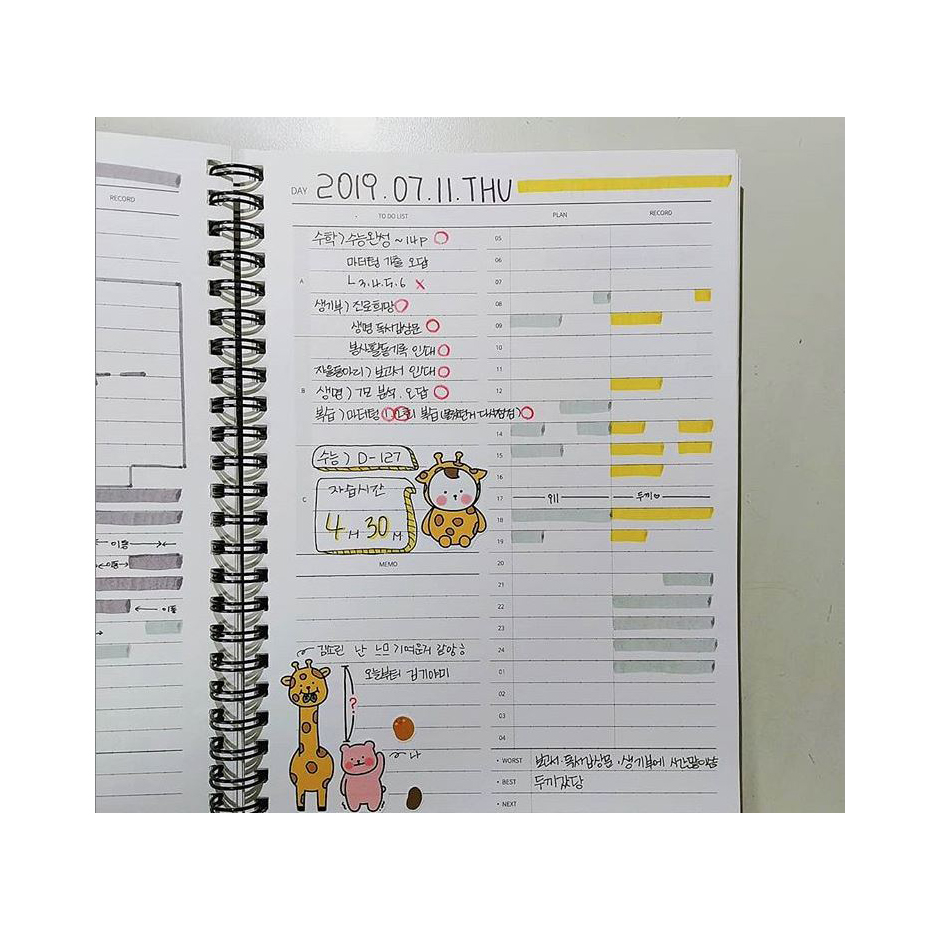 RECORD
이동
이동
이동
DAY 2019.07.11.THU
TO DO LIST
PLAN
RECORD
수학 > 수능완성 ~14p
마더텅 기출 오답
A
ㄴ 3.4.5.6 X
생기부 > 진로희망
생명 독서감상문
봉사활동기록 인쇄
자율동아리 > 보고서 인쇄
B
생명 > 7모 분석. 오답
복습 > 마더텅 복습
수능 > D-127
C
자습시간
4H 30M
MEMO
난 느므 기여운거 같앙ㅎ
오늘부터 김기야미
?
나
05
06
07
08
09
10
11
12
14
15
16
17
911
두끼♡
18
19
20
21
22
23
24
01
02
03
04
• WORST 보고서·독서감상문·생기부에
• BEST 두끼갔당
• NEXT